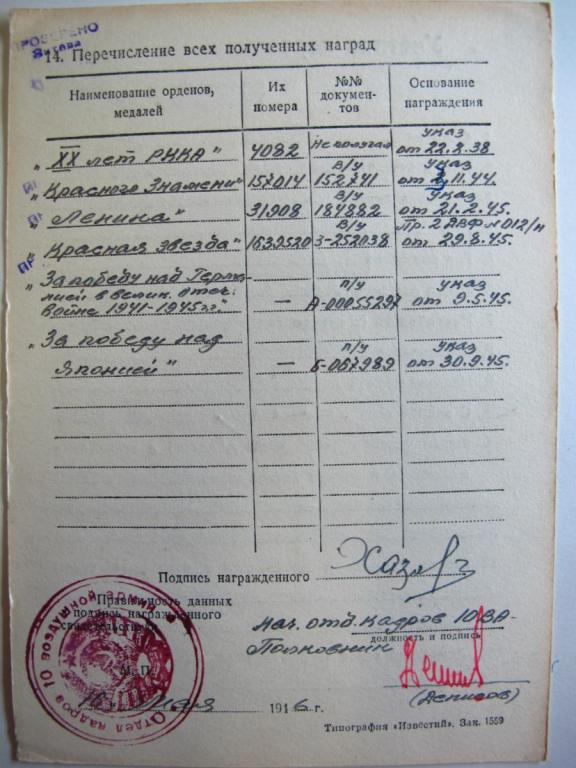 ПРОВЕРЕНО
14. Перечисление всех полученных наград
Наименование орденов, медалей
Их номера
№№ документов
Основание награждения
„ХХ лет РККА" 4082 Не получал Указ от 22.2.38
„Красного Знамени" 157014 В/У 152741 Указ от 3.11.44.
„Ленина" 31908 В/У 184882 Указ от 21.2.45.
„Красная Звезда" 1639520 В/У З-252038 Пр. 2 ДВФ №012/н от 29.8.45.
„За победу над Германией в велик. отеч.
войне 1941-1945гг." — п/у А-00055297 Указ от 9.5.45.
„За победу над
Японией" — п/у Б-067989 Указ от 30.9.45.
Подпись награжденного
Правильность данных
и подпись награжденного
свидетельствую
Нач. отд. кадров 10 ВА
должность и подпись
Полковник
(Денисов)
М. П.
мая 1946 г.
Отдел кадров 10 воздушной армии
Типография «Известий». Зак. 1559